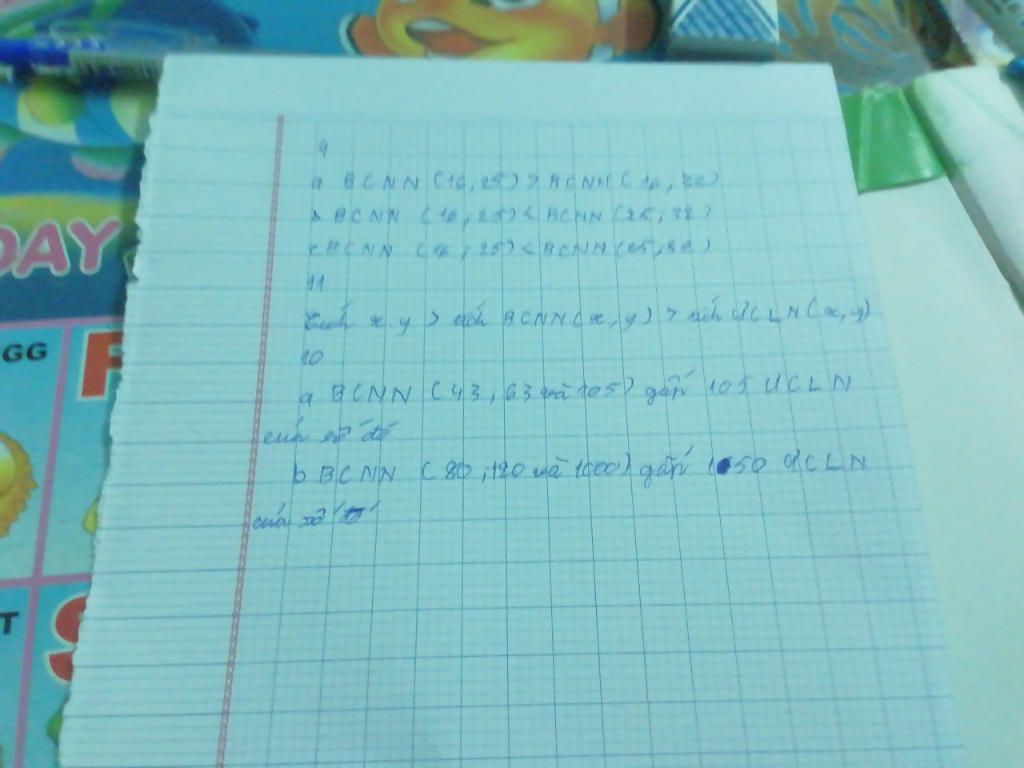 DAY
GG
T
S
9
a BCNN (16,25) > BCNN (16,32)
b BCNN (16,25) < BCNN (25,32)
c BCNN (16,25) < BCNN (25,32)
11
Tích x.y > tích BCNN (x,y) > tích ƯCLN (x,y)
10
a BCNN (43,63 và 105) gấp 105 ƯCLN
của số đó
b BCNN (80,120 và 1000) gấp 1050 ƯCLN
của số đó